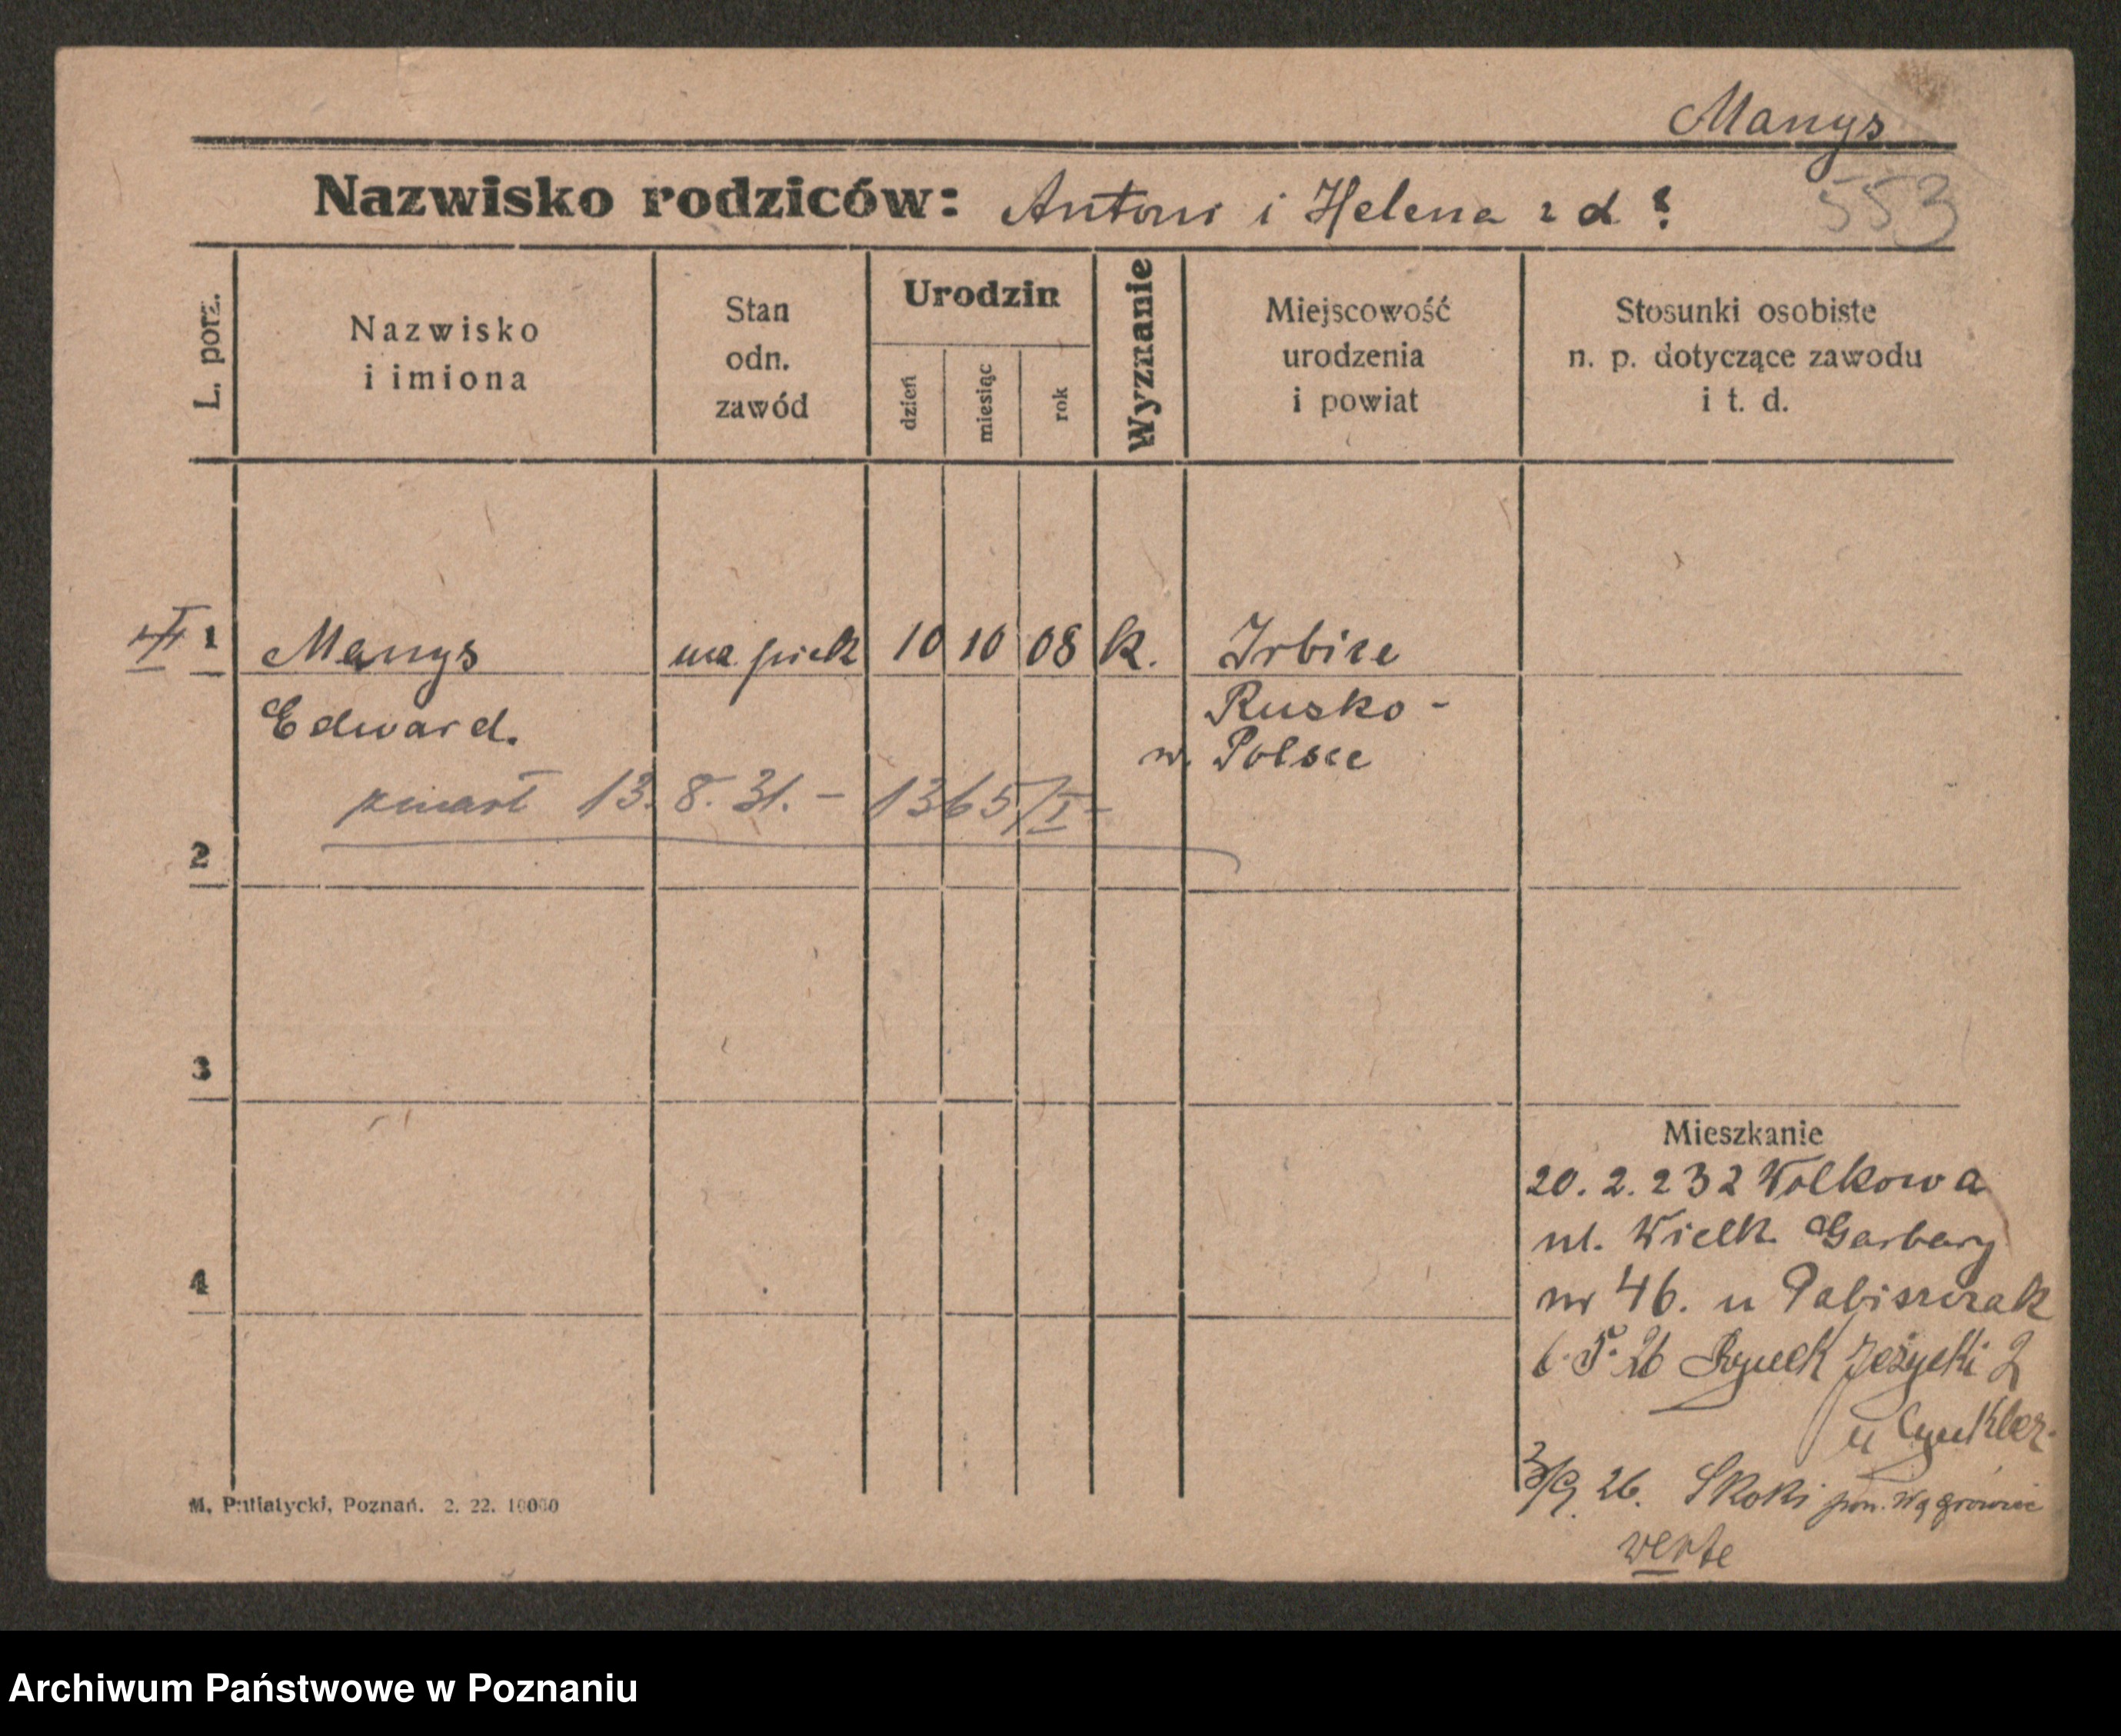 Manys
Nazwisko rodziców: Antoni i Helena z d ?
553
L. porz.
Nazwisko
i imiona
Stan
odn.
zawód
Urodzin
dzień
miesiąc
rok
Wyznanie
Miejscowość
urodzenia
i powiat
Stosunki osobiste
n. p. dotyczące zawodu
i t. d.
1 Manys piek 10 10 08 k. Irbice
Edward. Rusko -
w. Polsce
zmarł 13. 8. 31. - 1365/I -
2
3
4
Mieszkanie
20. 2. 232 Wolkowa
ul. Wielk. Garbary
nr 46. u Pabiszczak
6. 5. 26 Rynek Jeżycki 2
u
3/9. 26. Skoki pow. Wągrowiec
verte
M. Putiatycki, Poznań. 2. 22. 10000
Archiwum Państwowe w Poznaniu